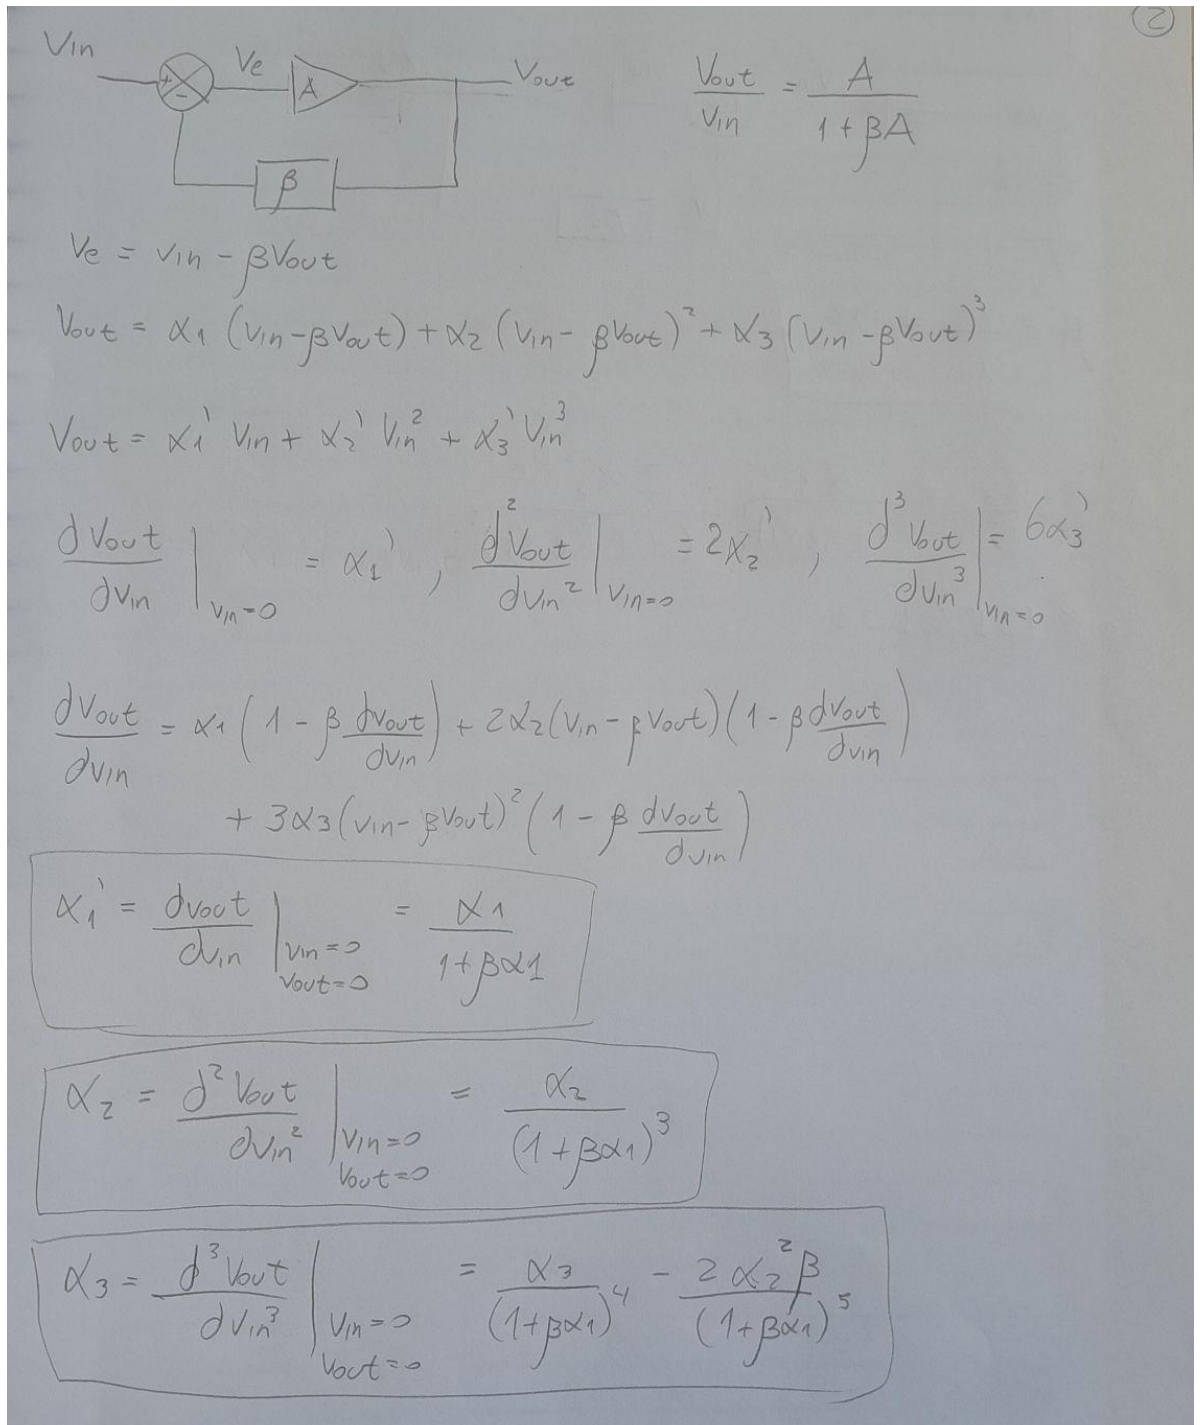 ②
Vin + - Ve A Vout β
Vout/Vin = A/(1 + βA)
Ve = Vin - βVout
Vout = α1 (Vin-βVout) + α2 (Vin - βVout)² + α3 (Vin -βVout)³
Vout = α1' Vin + α2' Vin² + α3' Vin³
dVout/dVin |Vin=0 = α1' , d²Vout/dVin² |Vin=0 = 2α2' , d³Vout/dVin³ |Vin=0 = 6α3'
dVout/dVin = α1 (1 - β dVout/dVin) + 2α2(Vin - βVout)(1 - β dVout/dVin)
+ 3α3(Vin - βVout)² (1 - β dVout/dVin)
α1' = dVout/dVin |Vin=0 Vout=0 = α1/(1+βα1)
α2 = d²Vout/dVin² |Vin=0 Vout=0 = α2/(1+βα1)³
α3 = d³Vout/dVin³ |Vin=0 Vout=0 = α3/(1+βα1)⁴ - 2α2²β/(1+βα1)⁵